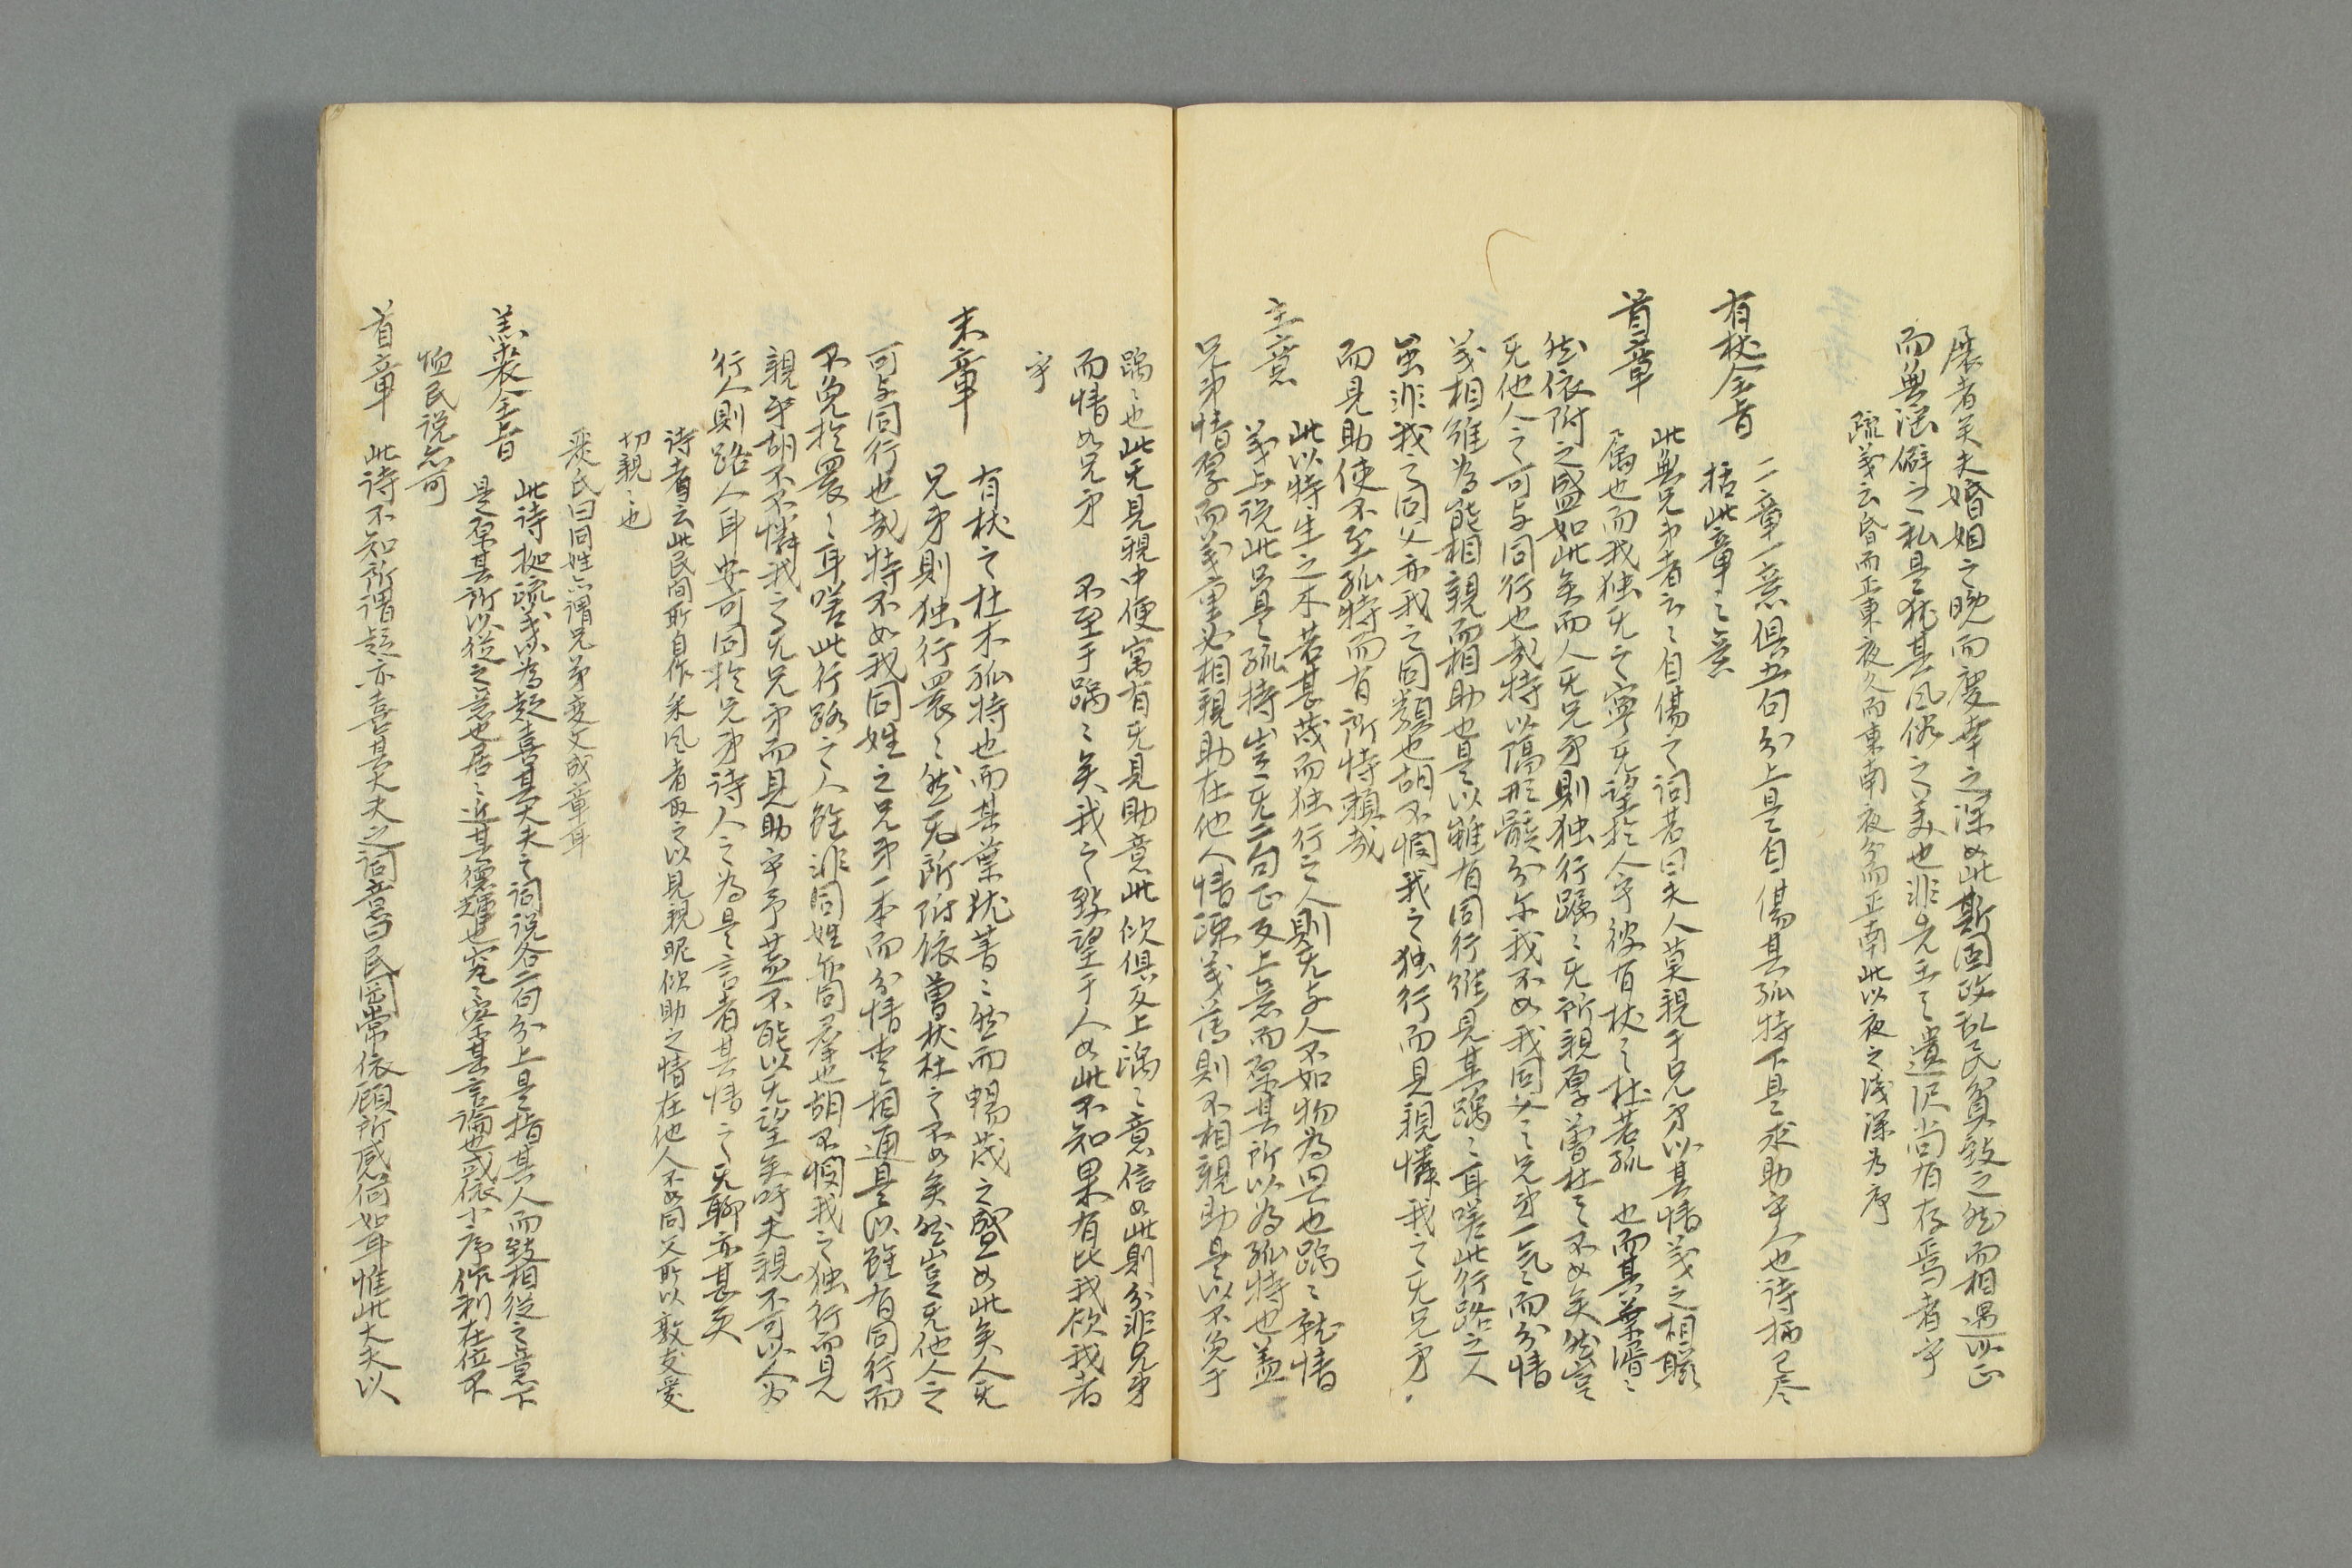 展者矣夫婚姻之晚而慶幸之深如此斯固政乱民貧致之然而相遇以正
而無淫僻之私是猶其風俗之美也非先王之遺沢尚有存焉者乎
疏義云昏而正東夜久而東南夜分而正南此以夜之浅深為序
有杕全旨 二章一意俱五句分上是自傷其孤特下是求助乎人也詩柄已尽
括此章之意
首章 此無兄弟者云々自傷之詞若曰夫人莫親于兄弟以其情義之相聯
属也而我独无之寧无望於人乎彼有杕之杜若孤 也而其葉湑々
然依附之盛如此矣而人无兄弟則独行踽々无所親厚曽杜之不如矣然豈
无他人之可与同行也哉特以隔形骸分尓我不如我同父之兄弟一気而分情
義相維為能相親而相助也是以雖有同行継見其踽々耳嗟此行路之人
虽非我之同父亦我之同類也胡不憫我之独行而見親憐我之无兄弟
而見助使不至孤特而有所恃頼哉
主意 此以特生之木若甚茂而独行之人則无与人不如物為異也踽々就情
義上説此只是孤特豈无二句正反上意而探其所以為孤特也盖
兄弟情厚而義重必相親助在他人情疎義薄則不相親助是以不免于
踽々也此无見親中便寓有无見助意此佽俱反上踽々意信如此則分非兄弟
而情如兄弟 不至于踽々矣我之致望于人如此不知果有比我佽我者
乎
末章 有杕之杜木孤特也而其葉犹菁々然而暢茂之盛如此矣人无
兄弟則独行睘々然无所附依曽杕杜之不如矣然豈无他人之
可与同行也哉特不如我同姓之兄弟一本而分情実相通是以雖有同行而
不免於睘々耳嗟此行路之人雖非同姓 同羣也胡不憫我之独行而見
親乎胡不憐我之无兄弟而見助乎予盖不能以无望矣吁夫親不可以人為
行人則路人耳安可同於兄弟詩人之為是言者其情之无聊亦甚矣
詩者云此民間所自作采風者取之以見親昵佽助之情在他人不如同父所以敦友愛
切親々也
嚴氏曰同姓亦謂兄弟変文成章耳
羔裘全旨 此詩拠疏義以為疑喜其大夫之詞説各二句分上是指其人而致相從之意下
是探其所以從之意也居々近其徳輝也究々察其言論也或依小序作刺在位不
恤民説亦可
首章 此詩不知所謂疑亦喜其大夫之詞意曰民罔常依顧所感何如耳惟此大夫以